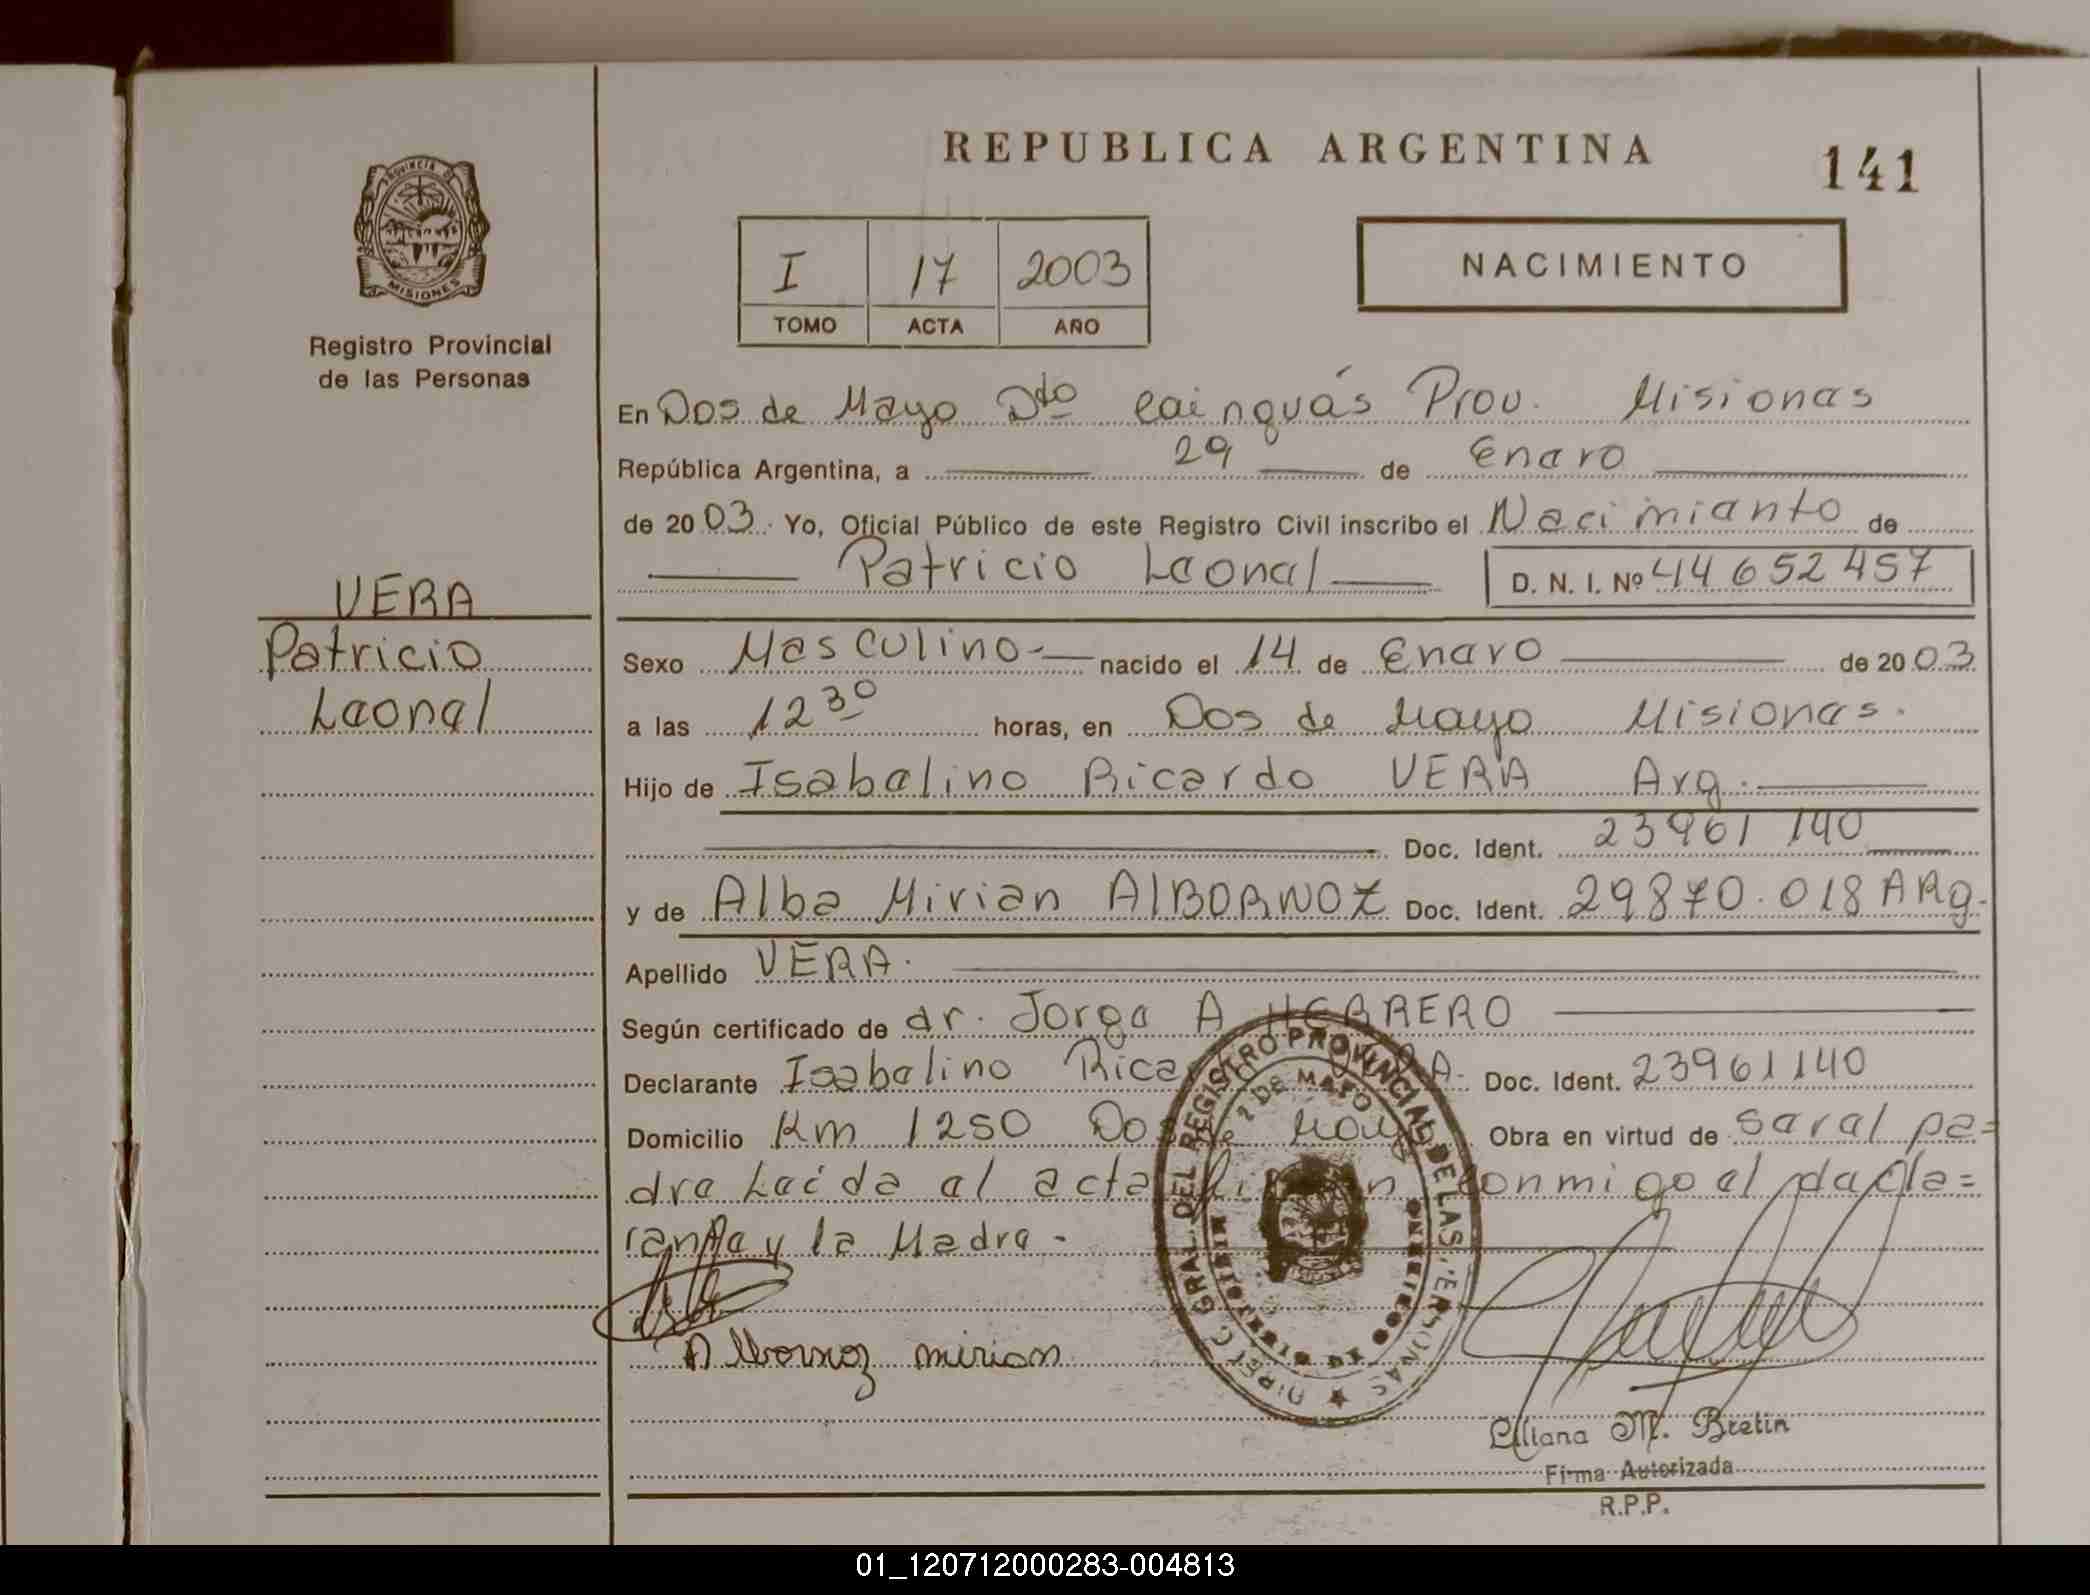 REPUBLICA ARGENTINA
141
PROVINCIA DE
MISIONES
Registro Provincial
de las Personas
I 17 2003
TOMO ACTA AÑO
NACIMIENTO
En Dos de Mayo Dto Cainguás Prov. Misiones
República Argentina, a 29 de Enero
de 2003. Yo, Oficial Público de este Registro Civil inscribo el Nacimiento de
Patricio Leonel D. N. I. Nº 44652457
VERA
Patricio
Leonel
Sexo Masculino nacido el 14 de Enero de 2003
a las 12 30 horas, en Dos de Mayo Misiones.
Hijo de Isabelino Ricardo VERA Arg.
Doc. Ident. 23961140
y de Alba Mirian AlBORNOZ Doc. Ident. 29870.018 ARg.
Apellido VERA.
Según certificado de dr. Jorge A HERRERO
Declarante Isabelino Doc. Ident. 23961140
Domicilio Km 1250 Dos de Mayo Obra en virtud de seral pa=
dre Leída el acta conmigo el decla=
rante y la Madre.
Albornoz mirian
DIREC. GRAL. DEL REGISTRO PROVINCIAL DE LAS PERSONAS
2 DE MAYO
Liliana M. Bretin
Firma Autorizada
R.P.P.
01_120712000283-004813